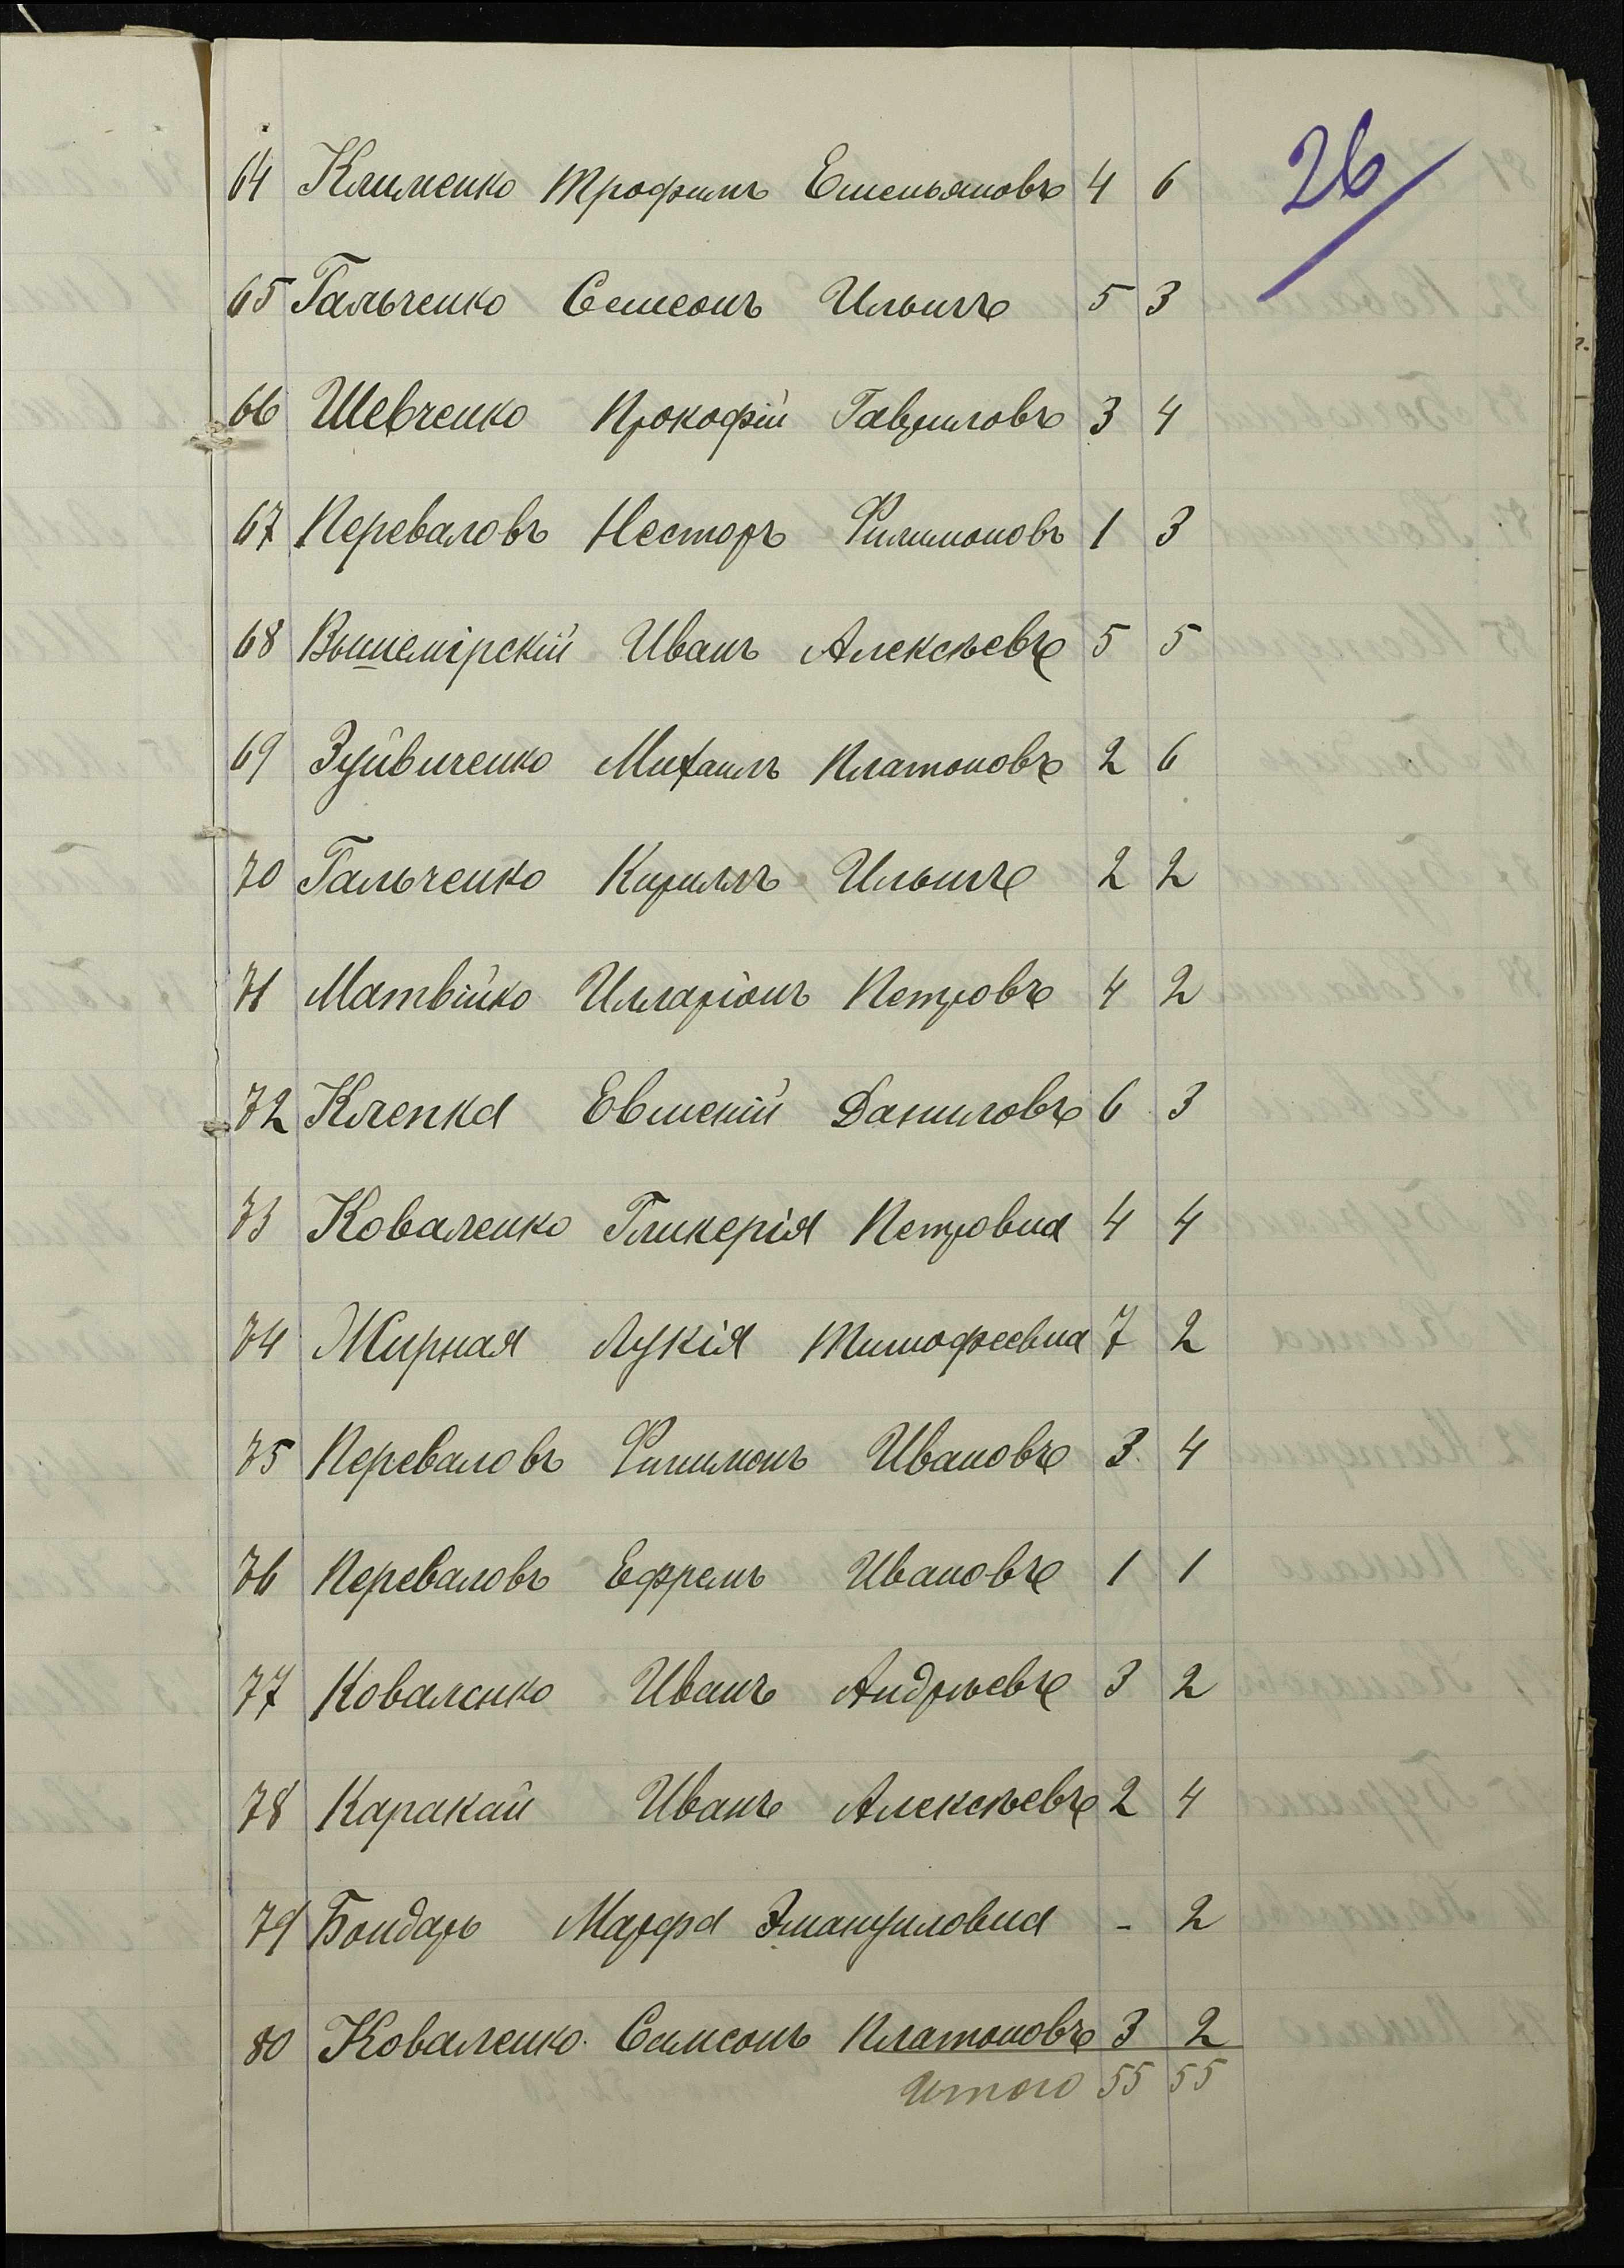 26
64 Клименко Трофимъ Емельяновъ 4 6
65 Гальченко Семсонъ Ильичъ 5 3
66 Шевченко Прокофій Гавриловъ 3 4
67 Переваловъ Несторъ Филимоновъ 1 3
68 Вышемірскій Иванъ Алексѣевъ 5 5
69 Зуйвиченко Михаилъ Платоновъ 2 6
70 Гальченко Кириллъ Ильичъ 2 2
71 Матвійко Илларіонъ Петровъ 4 2
72 Клепка Евменій Даниловъ 6 3
73 Коваленко Гликерія Петровна 4 4
74 Жирная Лукія Тимофеевна 7 2
75 Переваловъ Филимонъ Ивановъ 3 4
76 Переваловъ Ефремъ Ивановъ 1 1
77 Коваленко Иванъ Андрѣевъ 3 2
78 Каракай Иванъ Алексѣевъ 2 4
79 Бондарь Марфа Эмануиловна - 2
80 Коваленко Самсонъ Платоновъ 3 2
Итого 55 55